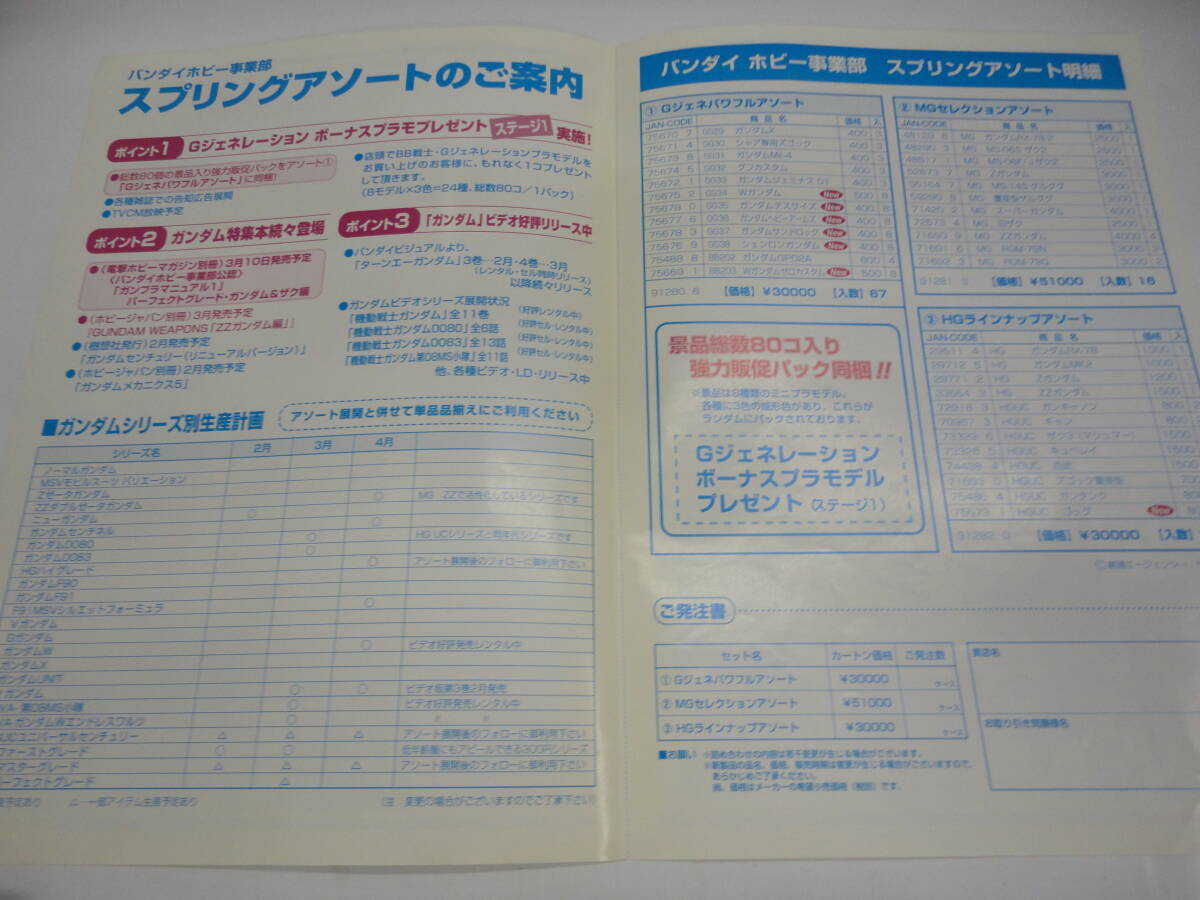 バンダイホビー事業部
スプリングアソートのご案内
ポイント1 Gジェネレーション ボーナスプラモプレゼント ステージ1 実施!
●総数80個の景品入り強力販促パックをアソート①
「Gジェネパワフルアソート」に同梱!
●各種雑誌での告知広告展開
●TVCM放映予定
●店頭でBB戦士・Gジェネレーションプラモデルを
お買い上げのお客様に、もれなく1コプレゼント
して頂きます。
(8モデル×3色=24種、総数80コ/1パック)
ポイント2 ガンダム特集本続々登場
●(電撃ホビーマガジン別冊)3月10日発売予定
〈バンダイホビー事業部公認〉
「ガンプラマニュアル1」
パーフェクトグレード・ガンダム&ザク編
●(ホビージャパン別冊)3月発売予定
「GUNDAM WEAPONS「ZZガンダム編」」
●(樹想社発行)2月発売予定
「ガンダムセンチュリー(リニューアルバージョン)」
●(ホビージャパン別冊)2月発売予定
「ガンダムメカニクス5」
ポイント3 「ガンダム」ビデオ好評リリース中
●バンダイビジュアルより、
「ターンエーガンダム」3巻…2月・4巻…3月
(レンタル・セル同時リリース)
以降続々リリース
●ガンダムビデオシリーズ展開状況
「機動戦士ガンダム」全11巻 (好評レンタル中)
「機動戦士ガンダム0080」全6話 (好評セル・レンタル中)
「機動戦士ガンダム0083」全13話 (好評セル・レンタル中)
「機動戦士ガンダム第08MS小隊」全11話 (好評セル・レンタル中)
他、各種ビデオ・LD・リリース中
■ガンダムシリーズ別生産計画
アソート展開と併せて単品品揃えにご利用ください
シリーズ名 2月 3月 4月
ノーマルガンダム
MSVモビルスーツ バリエーション
Zゼータガンダム ○ MG:ZZで活性化しているシリーズです
ZZダブルゼータガンダム ○
ニューガンダム ○
ガンダムセンチネル ○ HG UCシリーズと同年代シリーズです
ガンダム0080 ○
ガンダム0083 ○ アソート展開後のフォローに御利用下さい
HGハイグレード
ガンダムF90
ガンダムF91
F91MSVシルエットフォーミュラ ○
Vガンダム
Gガンダム
ガンダムW ○ ビデオ好評発売レンタル中
ガンダムX
ガンダムUNIT
ガンダム ○ ○ ビデオ版第3巻2月発売
VA・第08MS小隊 ○ ビデオ好評発売レンタル中
VA・ガンダムWエンドレスワルツ ○ 〃 〃
UCユニバーサルセンチュリー △ △ △ アソート展開後のフォローに御利用下さい
ファーストグレード ○ ○ 低年齢層にもアピールできる300円シリーズ
マスターグレード △ △ △ アソート展開後のフォローに御利用下さい
パーフェクトグレード △
予定あり △…一部アイテム生産予定あり (注:変更の場合がございますのでご了承下さい)
バンダイ ホビー事業部 スプリングアソート明細
① Gジェネパワフルアソート
JAN-CODE 商品名 価格 入
75670 7 GG29 ガンダムX 400 3
75671 4 GG30 シャア専用ズゴック 400 3
75673 8 GG31 ガンダムMk-4 400 3
75674 5 GG32 グフカスタム 400 3
75672 1 GG33 ガンダムジェミナス 01 400 3
75675 2 GG34 Wガンダム New 500 8
75676 0 GG35 ガンダムデスサイズ New 400 8
75677 6 GG36 ガンダムヘビーアームズ New 400 8
75678 3 GG37 ガンダムサンドロック New 400 8
75676 9 GG38 シェンロンガンダム New 400 8
75488 8 BB202 ガンダムGP02A 600 4
75669 1 BB203 Wガンダムゼロカスタム New 500 8
91280 6 【価格】¥30000 【入数】67
② MGセレクションアソート
JAN-CODE 商品名 価格 入
MG ガンダムRX-78-2
MG MS-06S ザク2
MG MS-06F/J ザク2
MG Zガンダム
MG MS-14S ゲルググ
MG 量産型ゲルググ
MG スーパーガンダム
MG 旧ザク
MG ZZガンダム
MG RGM-79N
71692 3 MG RGM-79Q
91281 3 【価格】¥51000 【入数】16
③ HGラインナップアソート
JAN-CODE 商品名 価格 入
29511 4 HG ガンダムRX-78 1000
29712 5 HG ガンダムMK-2 1000
29771 2 HG Zガンダム
33564 3 HG ZZガンダム
72918 3 HGUC ガンキャノン 800
70967 3 HGUC ギャン 800
HGUC ザク3
73328 5 HGUC キュベレイ 1500
74438 4 HGUC 百式
HGUC ズゴック量産型
75486 4 HGUC ガンタンク
75573 1 HGUC ゴッグ New
91282 0 【価格】¥30000 【入数】
景品総数80コ入り
強力販促パック同梱!!
※景品は8種類のミニプラモデル。
各種に3色の成形色があり、これらが
ランダムにパックされております。
Gジェネレーション
ボーナスプラモデル
プレゼント(ステージ1)
©創通エージェンシー
ご発注書
セット名 カートン価格 ご発注数
① Gジェネパワフルアソート ¥30000 ケース
② MGセレクションアソート ¥51000 ケース
③ HGラインナップアソート ¥30000 ケース
貴店名
お取り引き問屋様名
■お願い ※詰め合わせの内容は若干変更が生じる場合がございます。
※新製品の品名、価格、販売時期は変更が生じる場合がございますので、
あらかじめご了承ください。
尚、価格はメーカーの希望小売価格(税別)です。